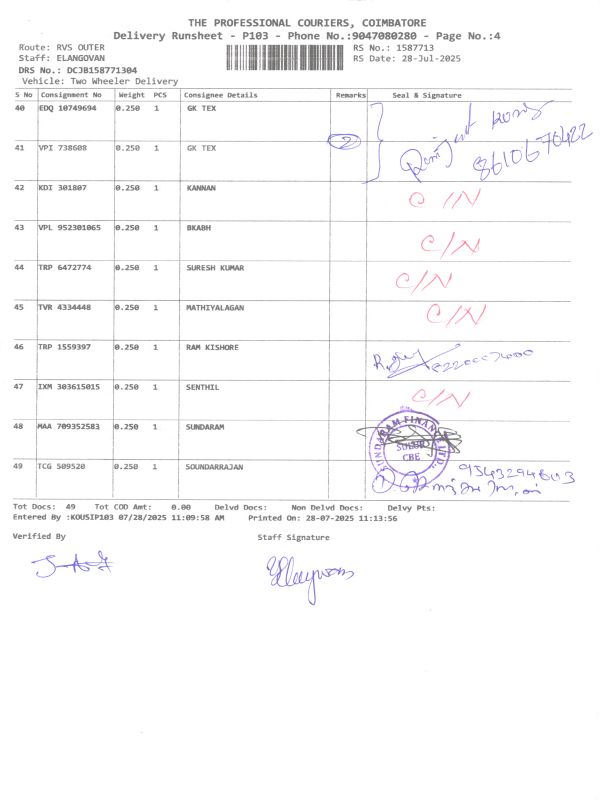 THE PROFESSIONAL COURIERS, COIMBATORE
Delivery Runsheet - P103 - Phone No.:9047080280 - Page No.:4
Route: RVS OUTER RS No.: 1587713
Staff: ELANGOVAN RS Date: 28-Jul-2025
DRS No.: DCJB158771304
Vehicle: Two Wheeler Delivery
S No Consignment No Weight PCS Consignee Details Remarks Seal & Signature
40 EDQ 10749694 0.250 1 GK TEX
41 VPI 738608 0.250 1 GK TEX 2 8610670422
42 KDI 301807 0.250 1 KANNAN C/N
43 VPL 952301065 0.250 1 BKABH C/N
44 TRP 6472774 0.250 1 SURESH KUMAR C/N
45 TVR 4334448 0.250 1 MATHIYALAGAN C/N
46 TRP 1559397 0.250 1 RAM KISHORE
47 IXM 303615015 0.250 1 SENTHIL C/N
48 MAA 709352583 0.250 1 SUNDARAM SUNDARAM FINANCE LTD. SULUR CBE
49 TCG 509520 0.250 1 SOUNDARRAJAN
Tot Docs: 49 Tot COD Amt: 0.00 Delvd Docs: Non Delvd Docs: Delvy Pts:
Entered By :KOUSIP103 07/28/2025 11:09:58 AM Printed On: 28-07-2025 11:13:56
Verified By Staff Signature